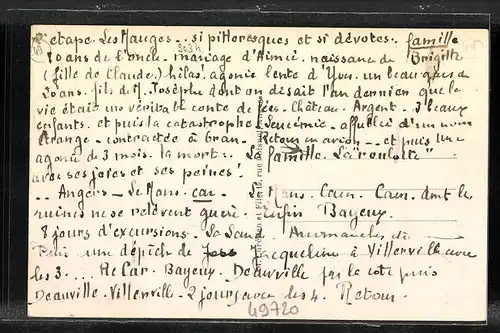 étape. Les Mauges... si pittoresques et si dévotes.. famille
80 ans de l'oncle. mariage d'Aimée. naissance de Brigitte
(fille de Claude.) hélas! agonie lente d'Yves. un beau gars de
20 ans. fils de Josèphe dont on disait l'an dernier que la
vie était un véritable conte de fées. Château. Argent. 3 beaux
enfants. et puis la catastrophe. Leucémie. affublée d'un nom
étrange. contractée à Oran. Retour en avion... et puis une
agonie de 3 mois. la mort... La famille. La roulotte"
avec ses joies et ses peines!
.. Angers – Le Mans. car. Le Mans. Caen. Caen dont les
ruines ne se relèvent guère. Enfin Bayeux
8 jours d'excursions. Avranches
une dépêche de Jacqueline à Villerville avec
les 3.... Re Car. Bayeux. Deauville par la côte puis
Deauville. Villerville. 2 jours avec les 4. Retour.
49720